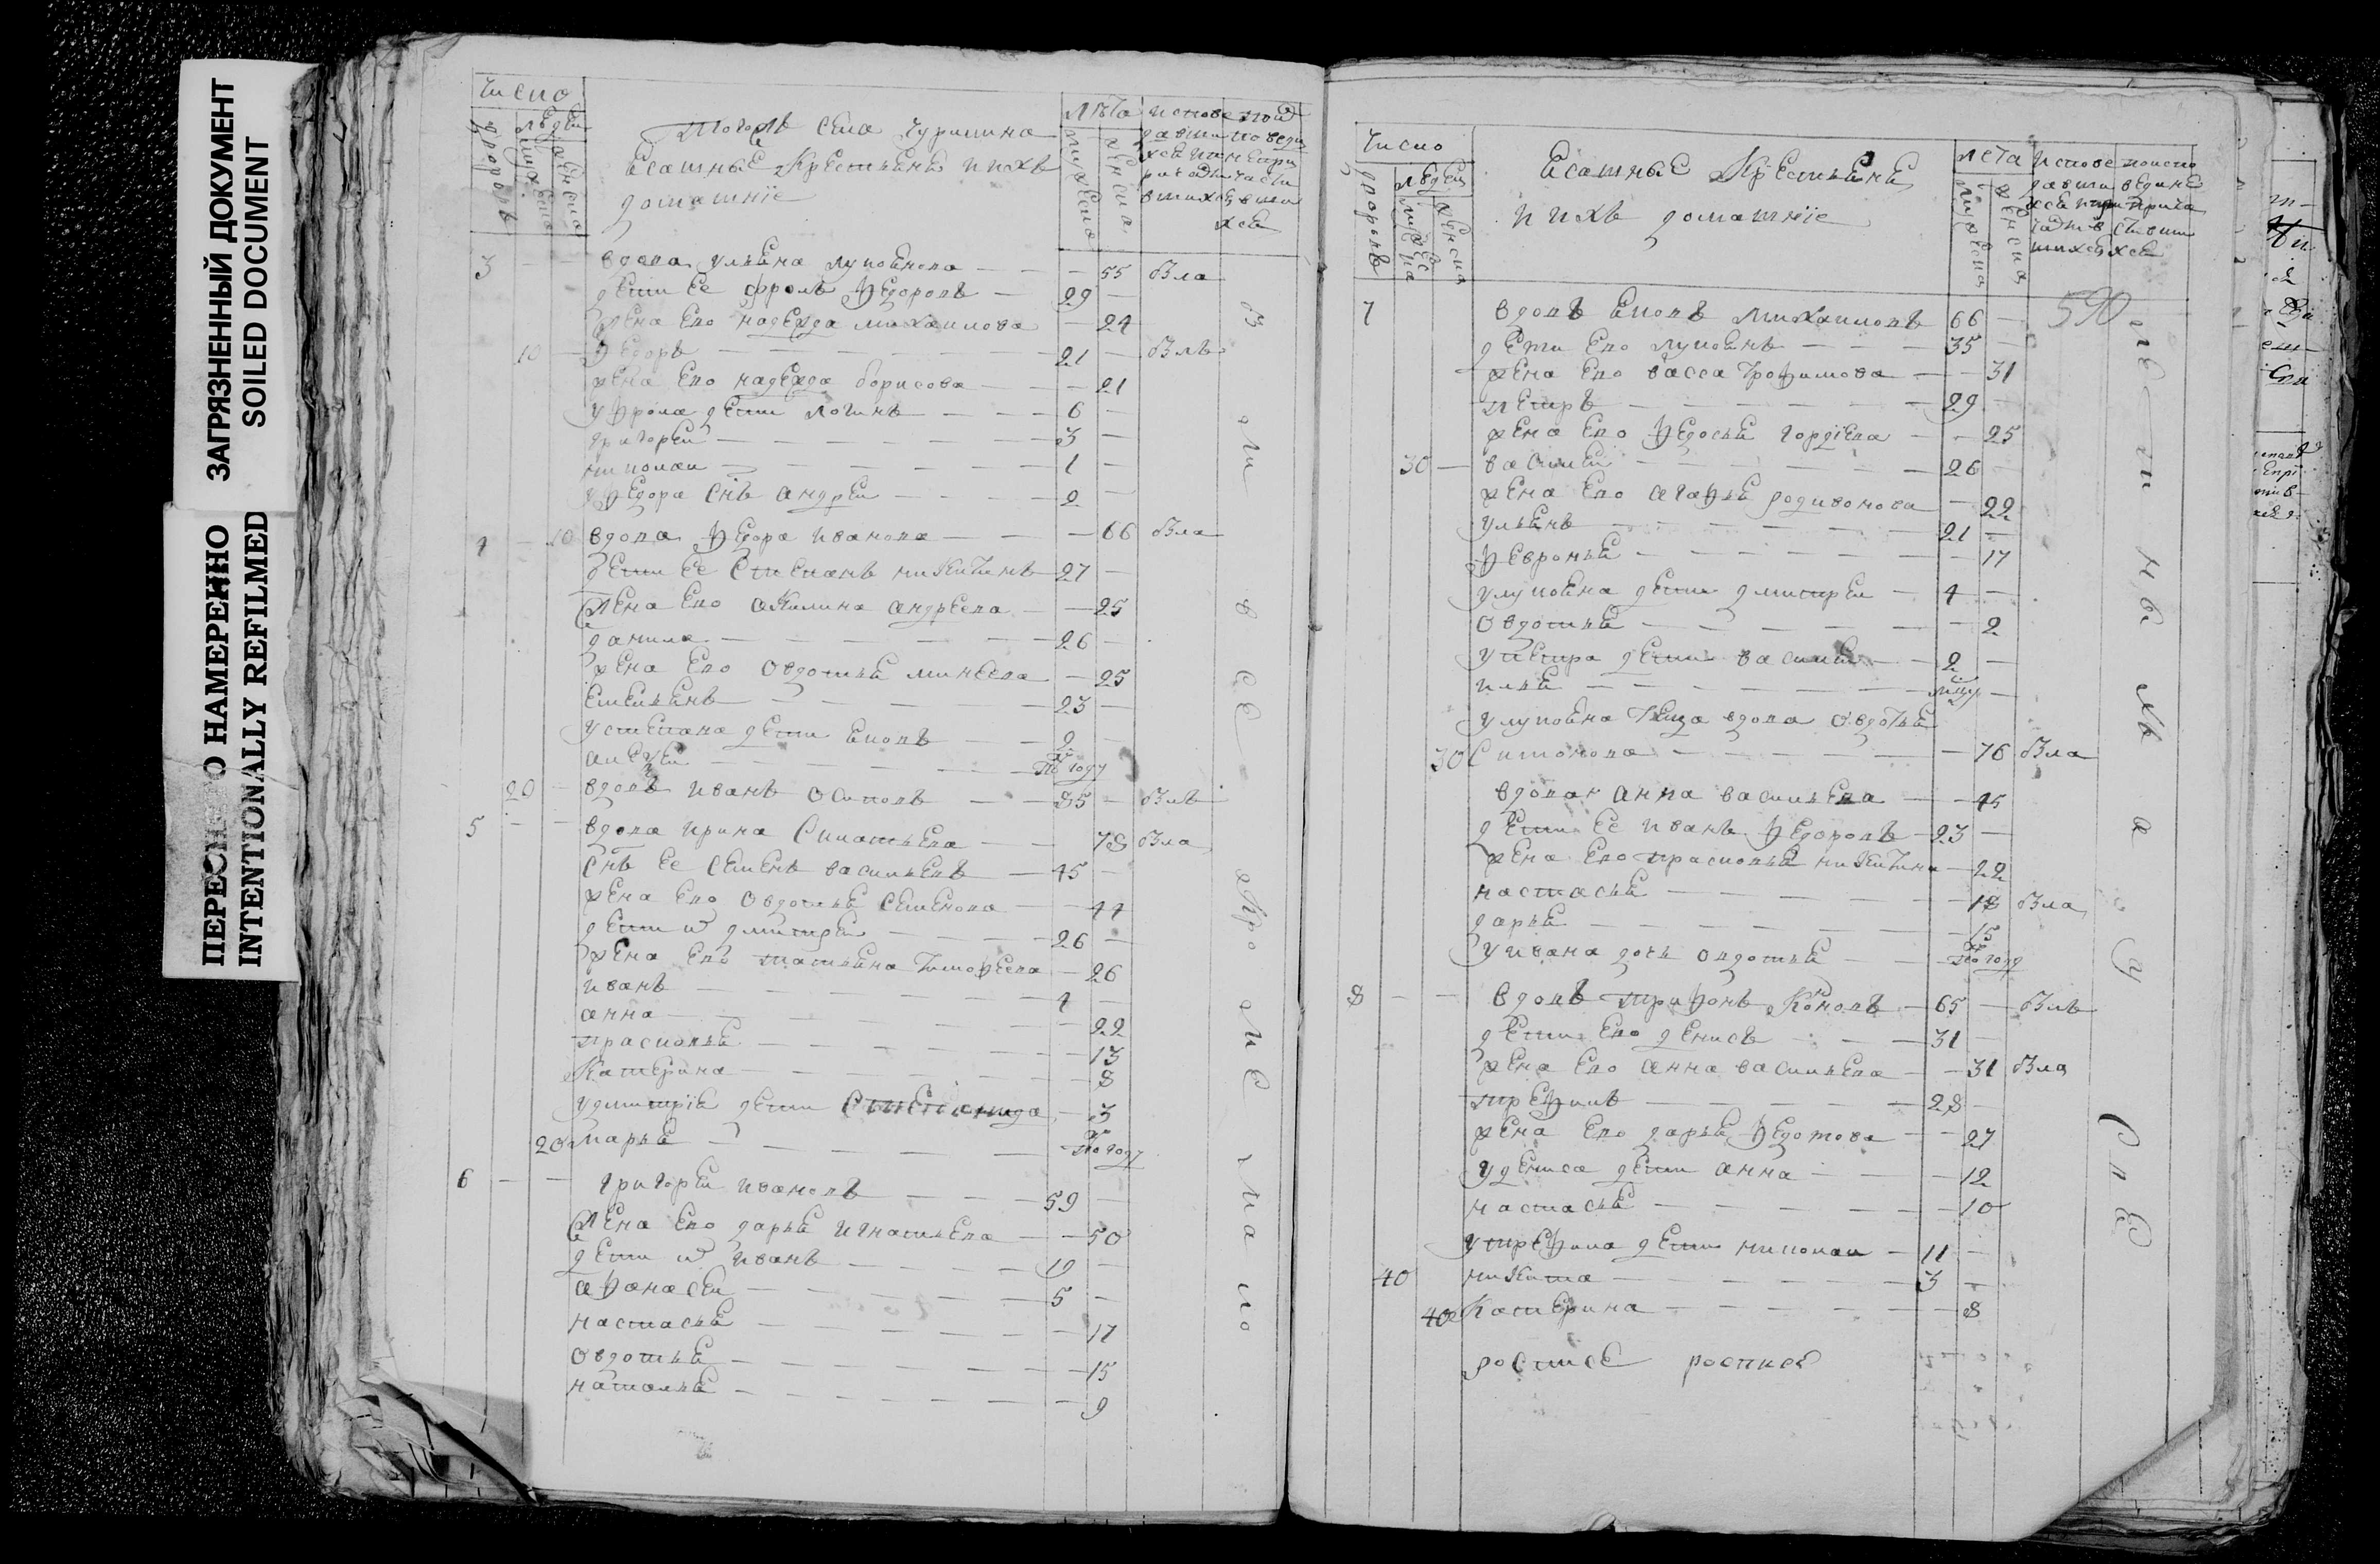 ЗАГРЯЗНЕННЫЙ ДОКУМЕНТ
SOILED DOCUMENT
ПЕРЕСНЯТО НАМЕРЕННО
INTENTIONALLY REFILMED
Число
дворовъ
людеи
мужеска
женска
Тогожъ села Чуримина
ясашные крестьяня и ихъ
домашніе
лѣта
мужеска
женска
3 вдова ульяна лукоянова 55 Взла
дети ее фролъ Ѳедоровъ 29
жена ево надежда михаилова 24
10 Ѳедоръ 21 Взлъ
жена ево надежда борисова 21
у Ѳрола дети логинъ 6
григореи 3
николаи 1
у Ѳедора снъ андреи 2
4 10 вдова Ѳедора иванова 66 Взла
дети ее степанъ никитинъ 27
жена ево акилина андреева 25
данила 26
жена ево овдотья минеева 25
емельянъ 23
у степана дети яковъ 2
алеѯеи по году
20 вдовъ иванъ осиповъ 85 Взлъ
5 вдова ирина силатьева 78 Взла
снъ ее семенъ васильевъ 45
жена ево овдотья семенова 44
дети ѿ дмитреи 26
жена ево татьяна тимоѳеева 26
иванъ 4
анна 22
прасковья 13
катерина 8
у дмитрия дети степанида 3
20 марья по году
6 григореи ивановъ 59
жена ево дарья игнатьева 50
дети ѿ иванъ 19
аѲанасеи 5
настасья 17
овдотья 15
наталья 9
Число
дворовъ
людеи
мужеска
женска
ясашные крестьяня
и ихъ домашніе
лета
мужеска
женска
590
7 вдовъ яковъ михаиловъ 66
дети ево лукоянъ 35
жена ево васса троѲимова 31
петръ 29
жена ево Ѳедосья гордіева 25
30 василеи 26
жена ево агаѲья родивонова 22
ульянъ 21
Ѳевронья 17
у лукояна дети дмитреи 4
овдотья 2
у петра дети василеи 2
илья
у лукояна теща вдова овдотья
30 ситонова 76 Взла
вдова анна васильева 45
дети ее иванъ Ѳедоровъ 23
жена ево прасковья никитина 22
настасья 18 Взла
дарья 15
у ивана дочь овдотья по году
8 вдовъ триѲонъ кононовъ 65 Взлъ
дети ево денисъ 31
жена ево анна васильева 31 Взла
треѲилъ 28
жена ево дарья Ѳедотова 27
у дениса дети анна 12
настасья 10
у треѲила дети николаи 11
40 никита 3
40 катерина 8
росписе росписе